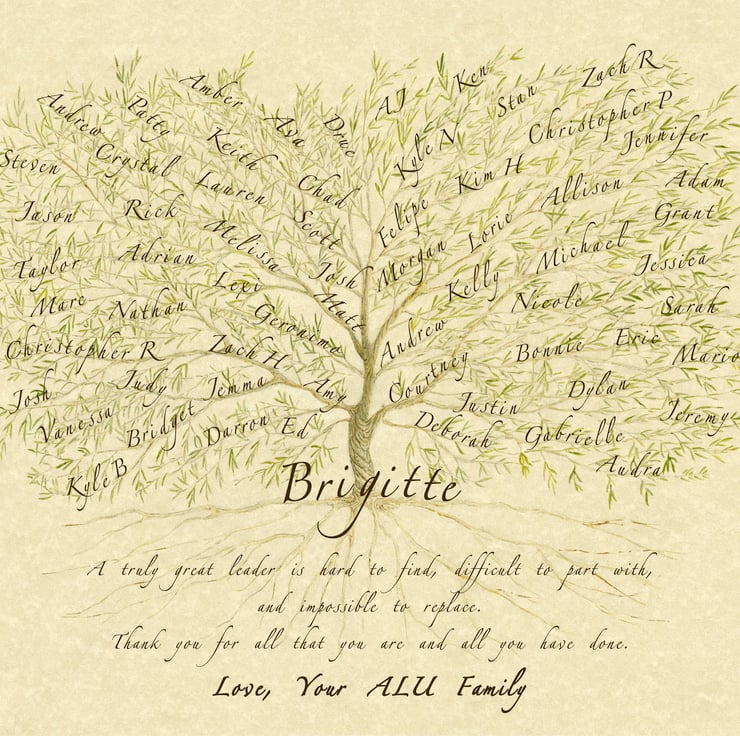 Amber
Ken
Zach R
Andrew
Patty
Ava
Drue
AJ
Stan
Christopher P
Steven
Crystal
Keith
Kyle N
Jennifer
Lauren
Chad
Kim H
Allison
Adam
Jason
Rick
Scott
Felipe
Lorie
Grant
Taylor
Adrian
Melissa
Josh
Morgan
Michael
Jessica
Marc
Nathan
Lexi
Matt
Kelly
Nicole
Sarah
Christopher R
Geronimo
Andrew
Bonnie
Eric
Mario
Zach H
Josh
Judy
Jemma
Amy
Courtney
Justin
Dylan
Vanessa
Bridget
Darron
Ed
Deborah
Gabrielle
Jeremy
Kyle B
Audra
Brigitte
A truly great leader is hard to find, difficult to part with,
and impossible to replace.
Thank you for all that you are and all you have done.
Love, Your ALU Family